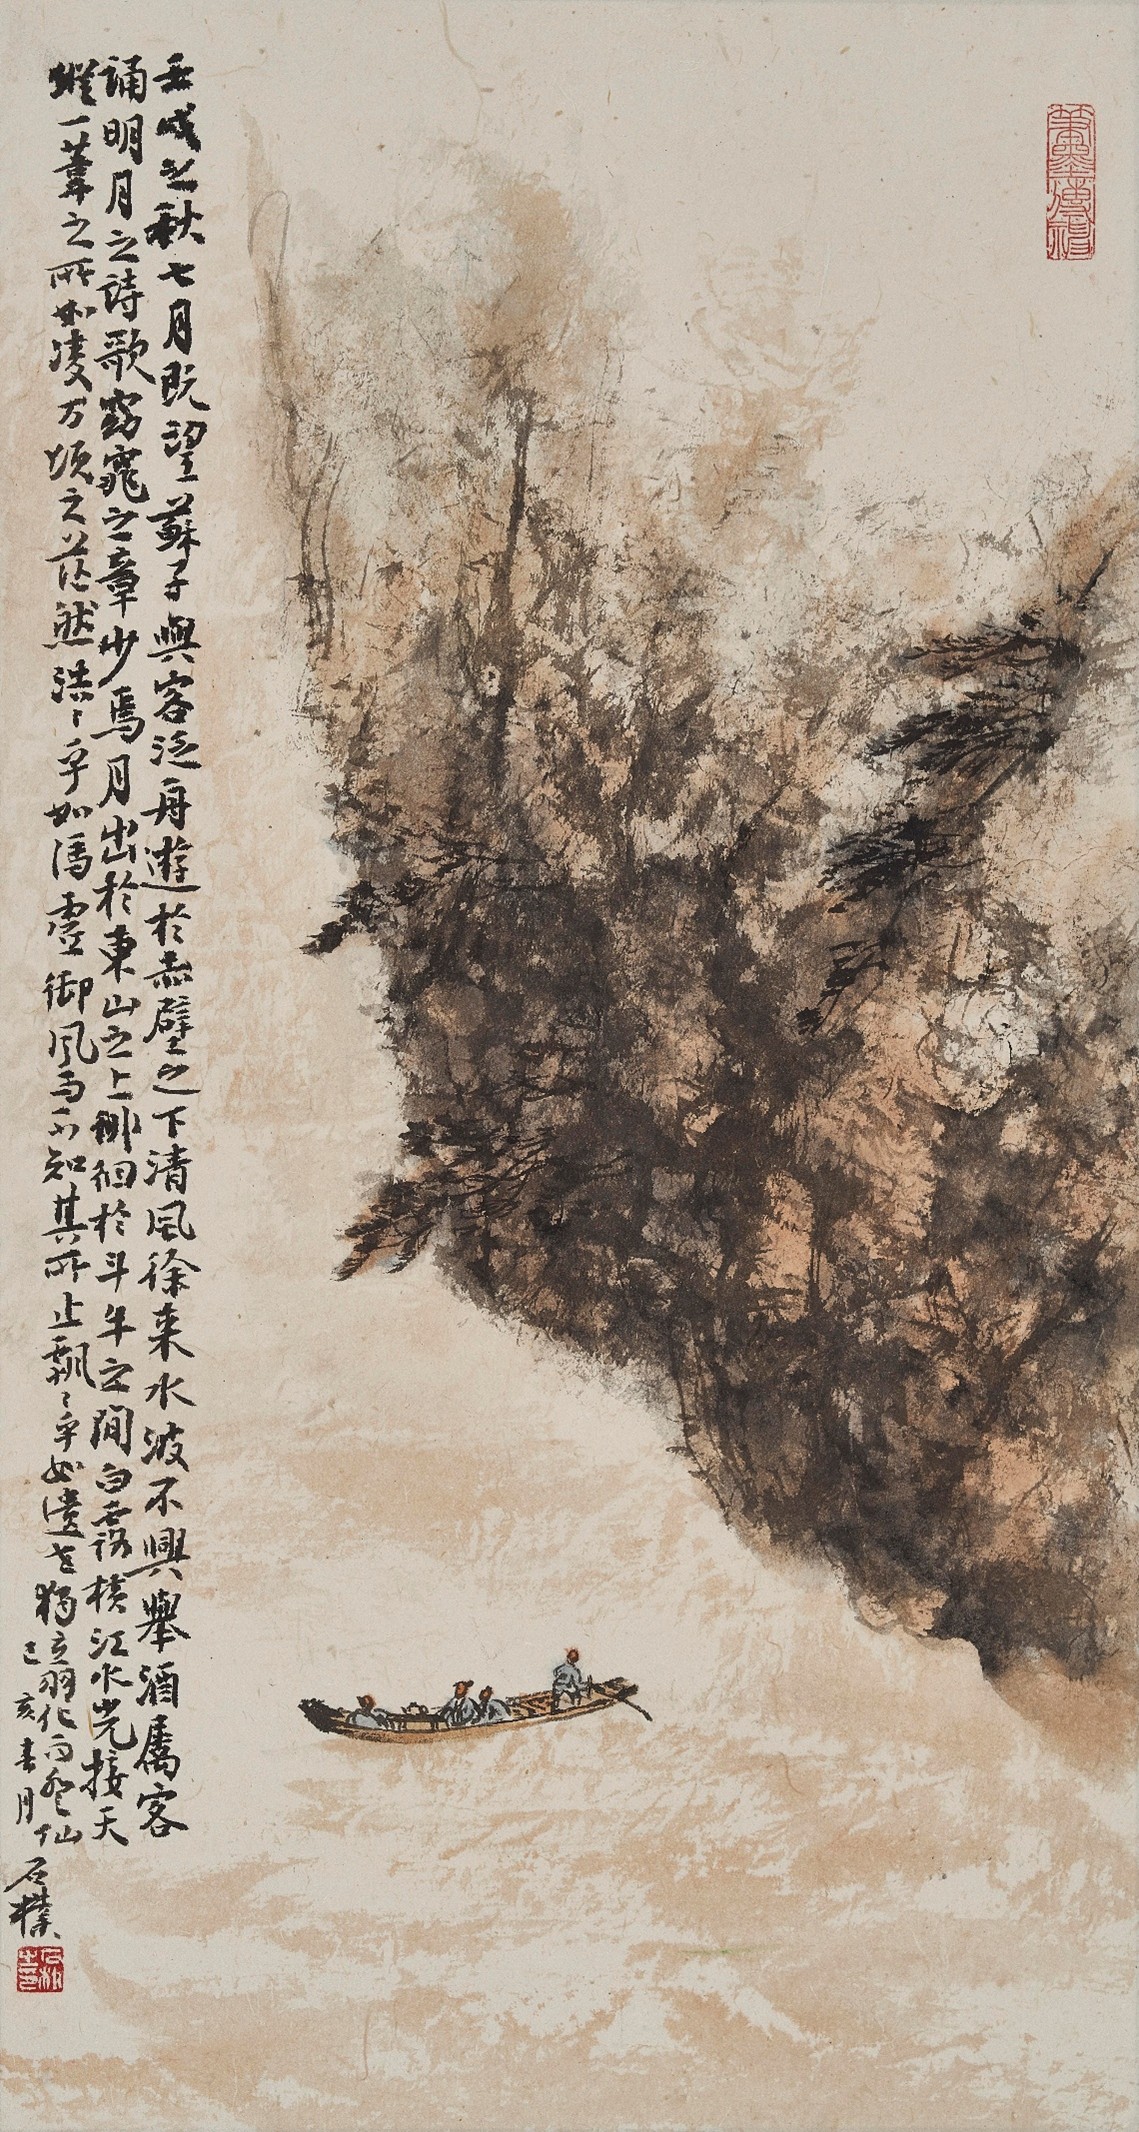 壬戌之秋七月既望蘇子與客泛舟遊於赤壁之下清風徐來水波不興舉酒屬客
誦明月之詩歌窈窕之章少焉月出於東山之上徘徊於斗牛之間白露橫江水光接天
縱一葦之所如凌万頃之茫然浩〻乎如馮虛御風而不知其所止飄〻乎如遺世獨立羽化而登仙
己亥春月
石樸
筆墨傳神